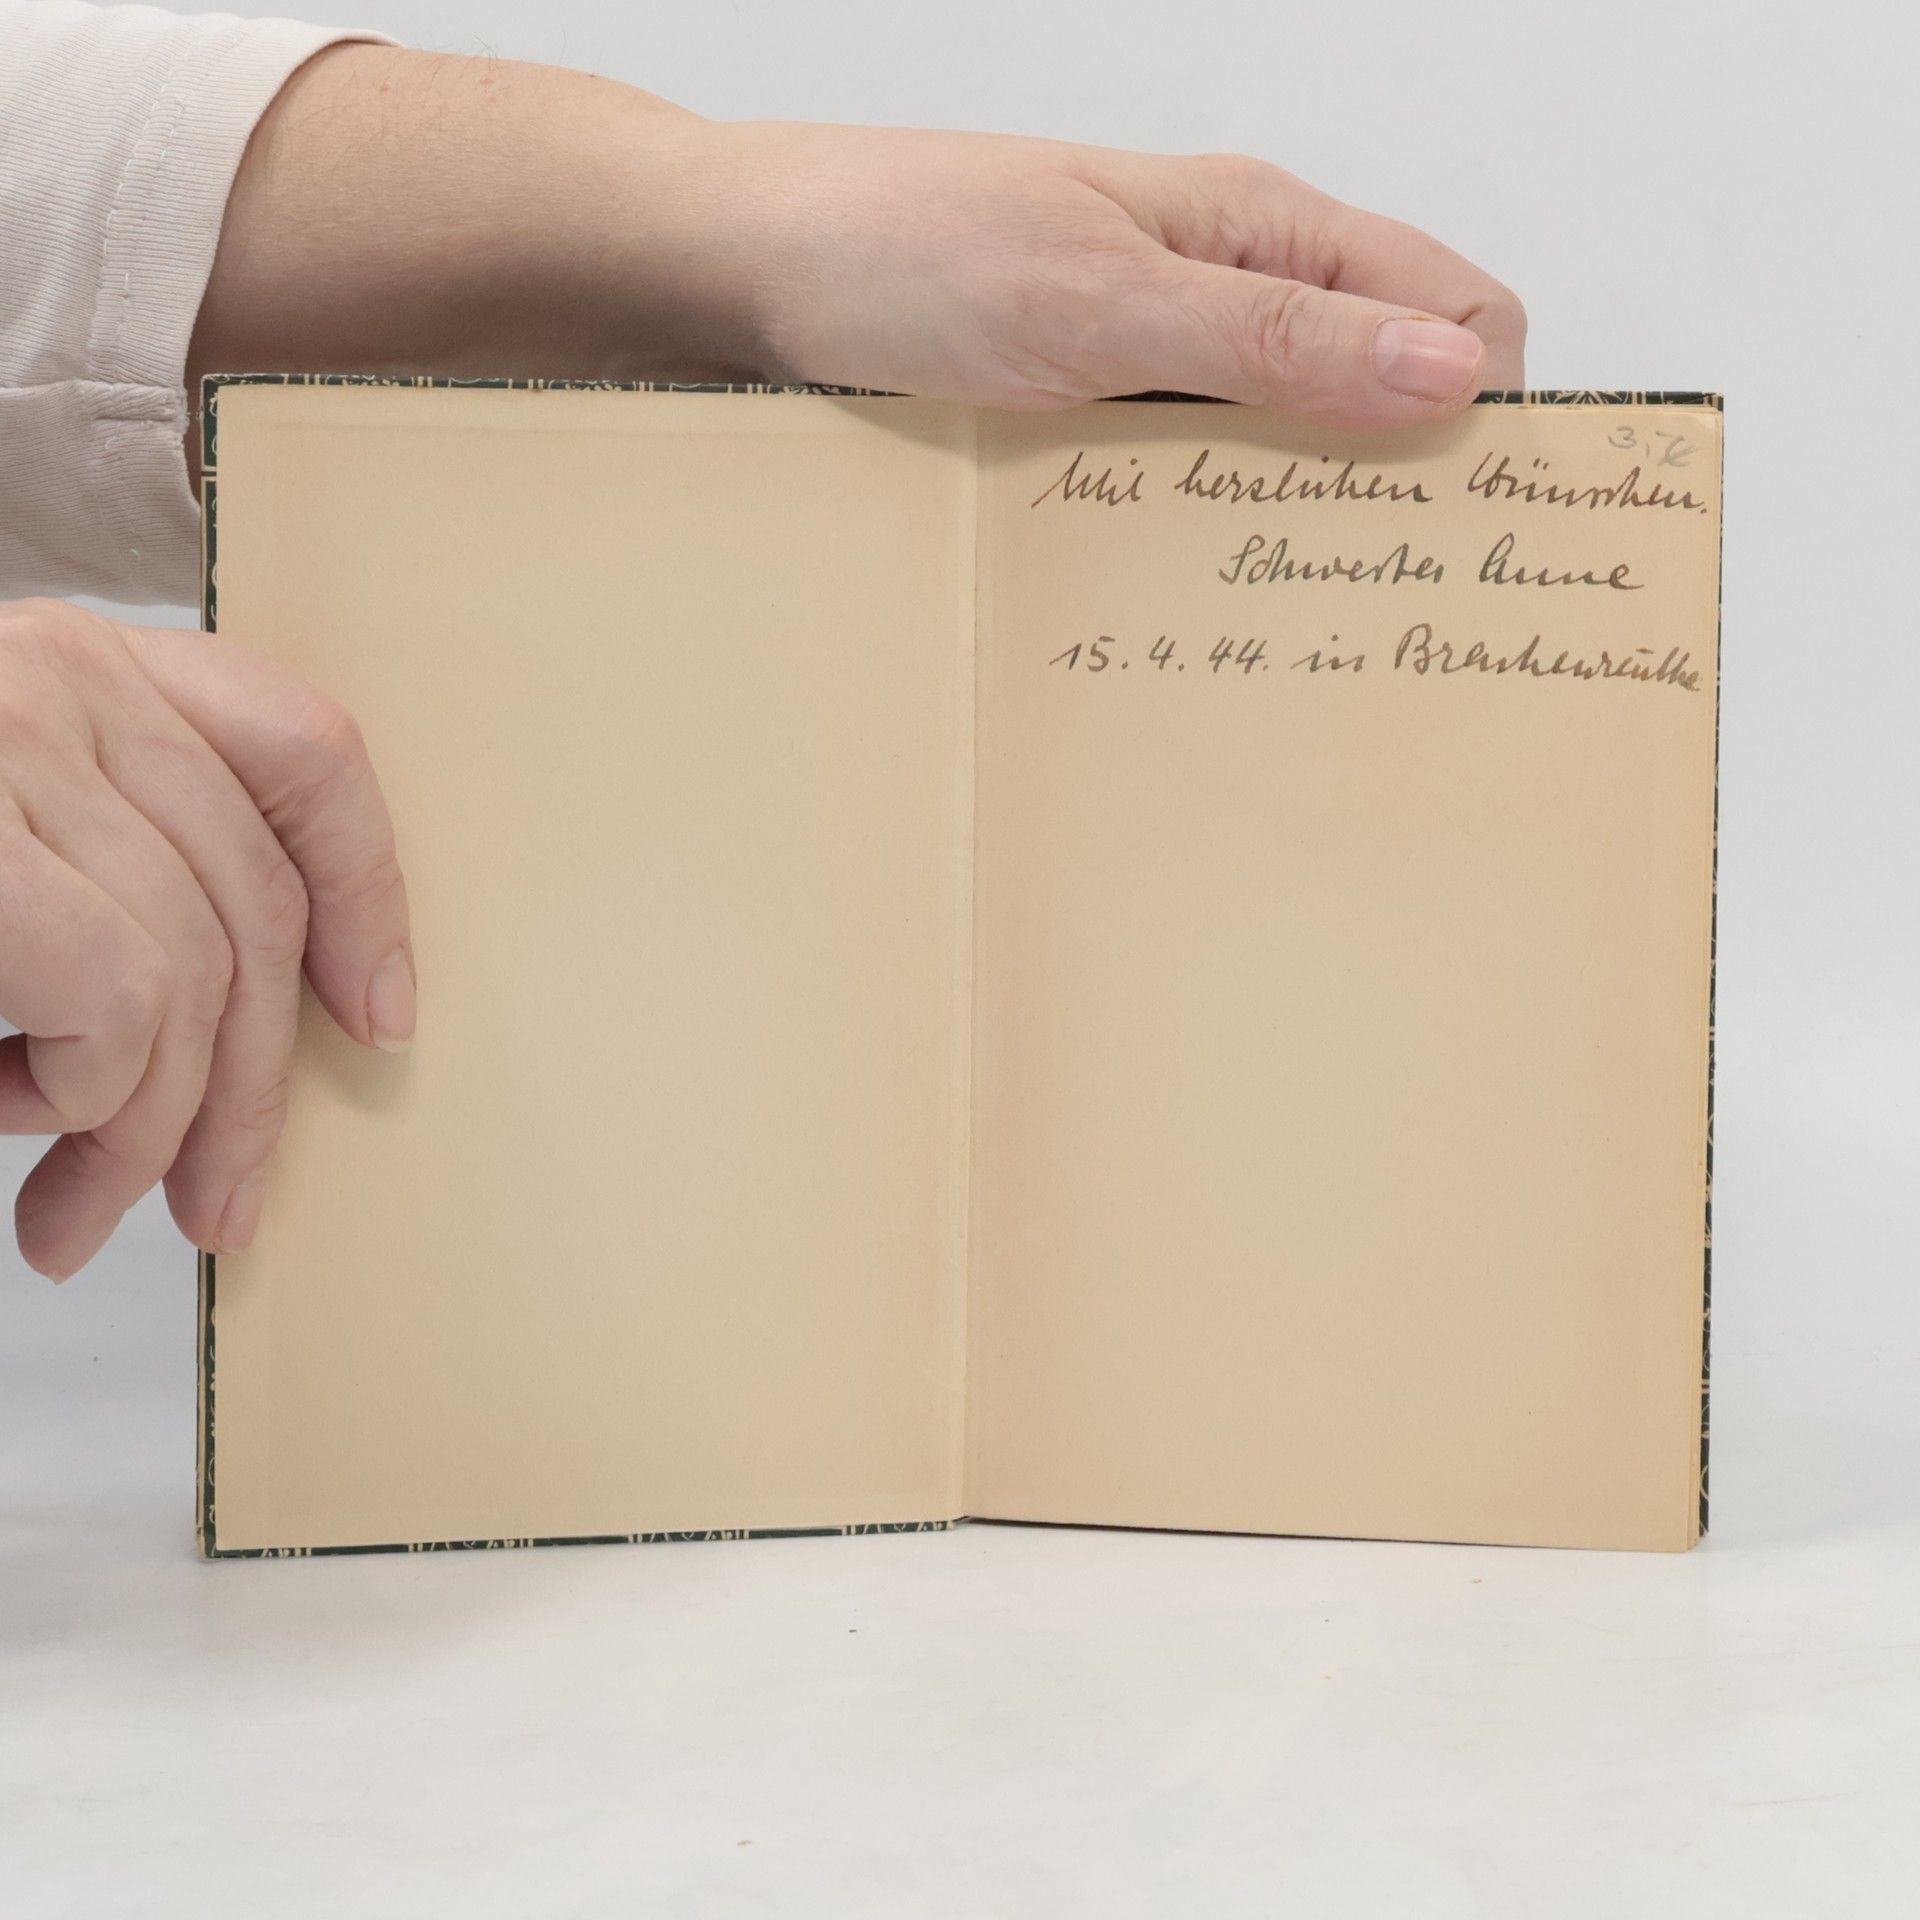 3,-
Mit herzlichen Wünschen.
Schwester Anne
15.4.44. in Brachenreuthe